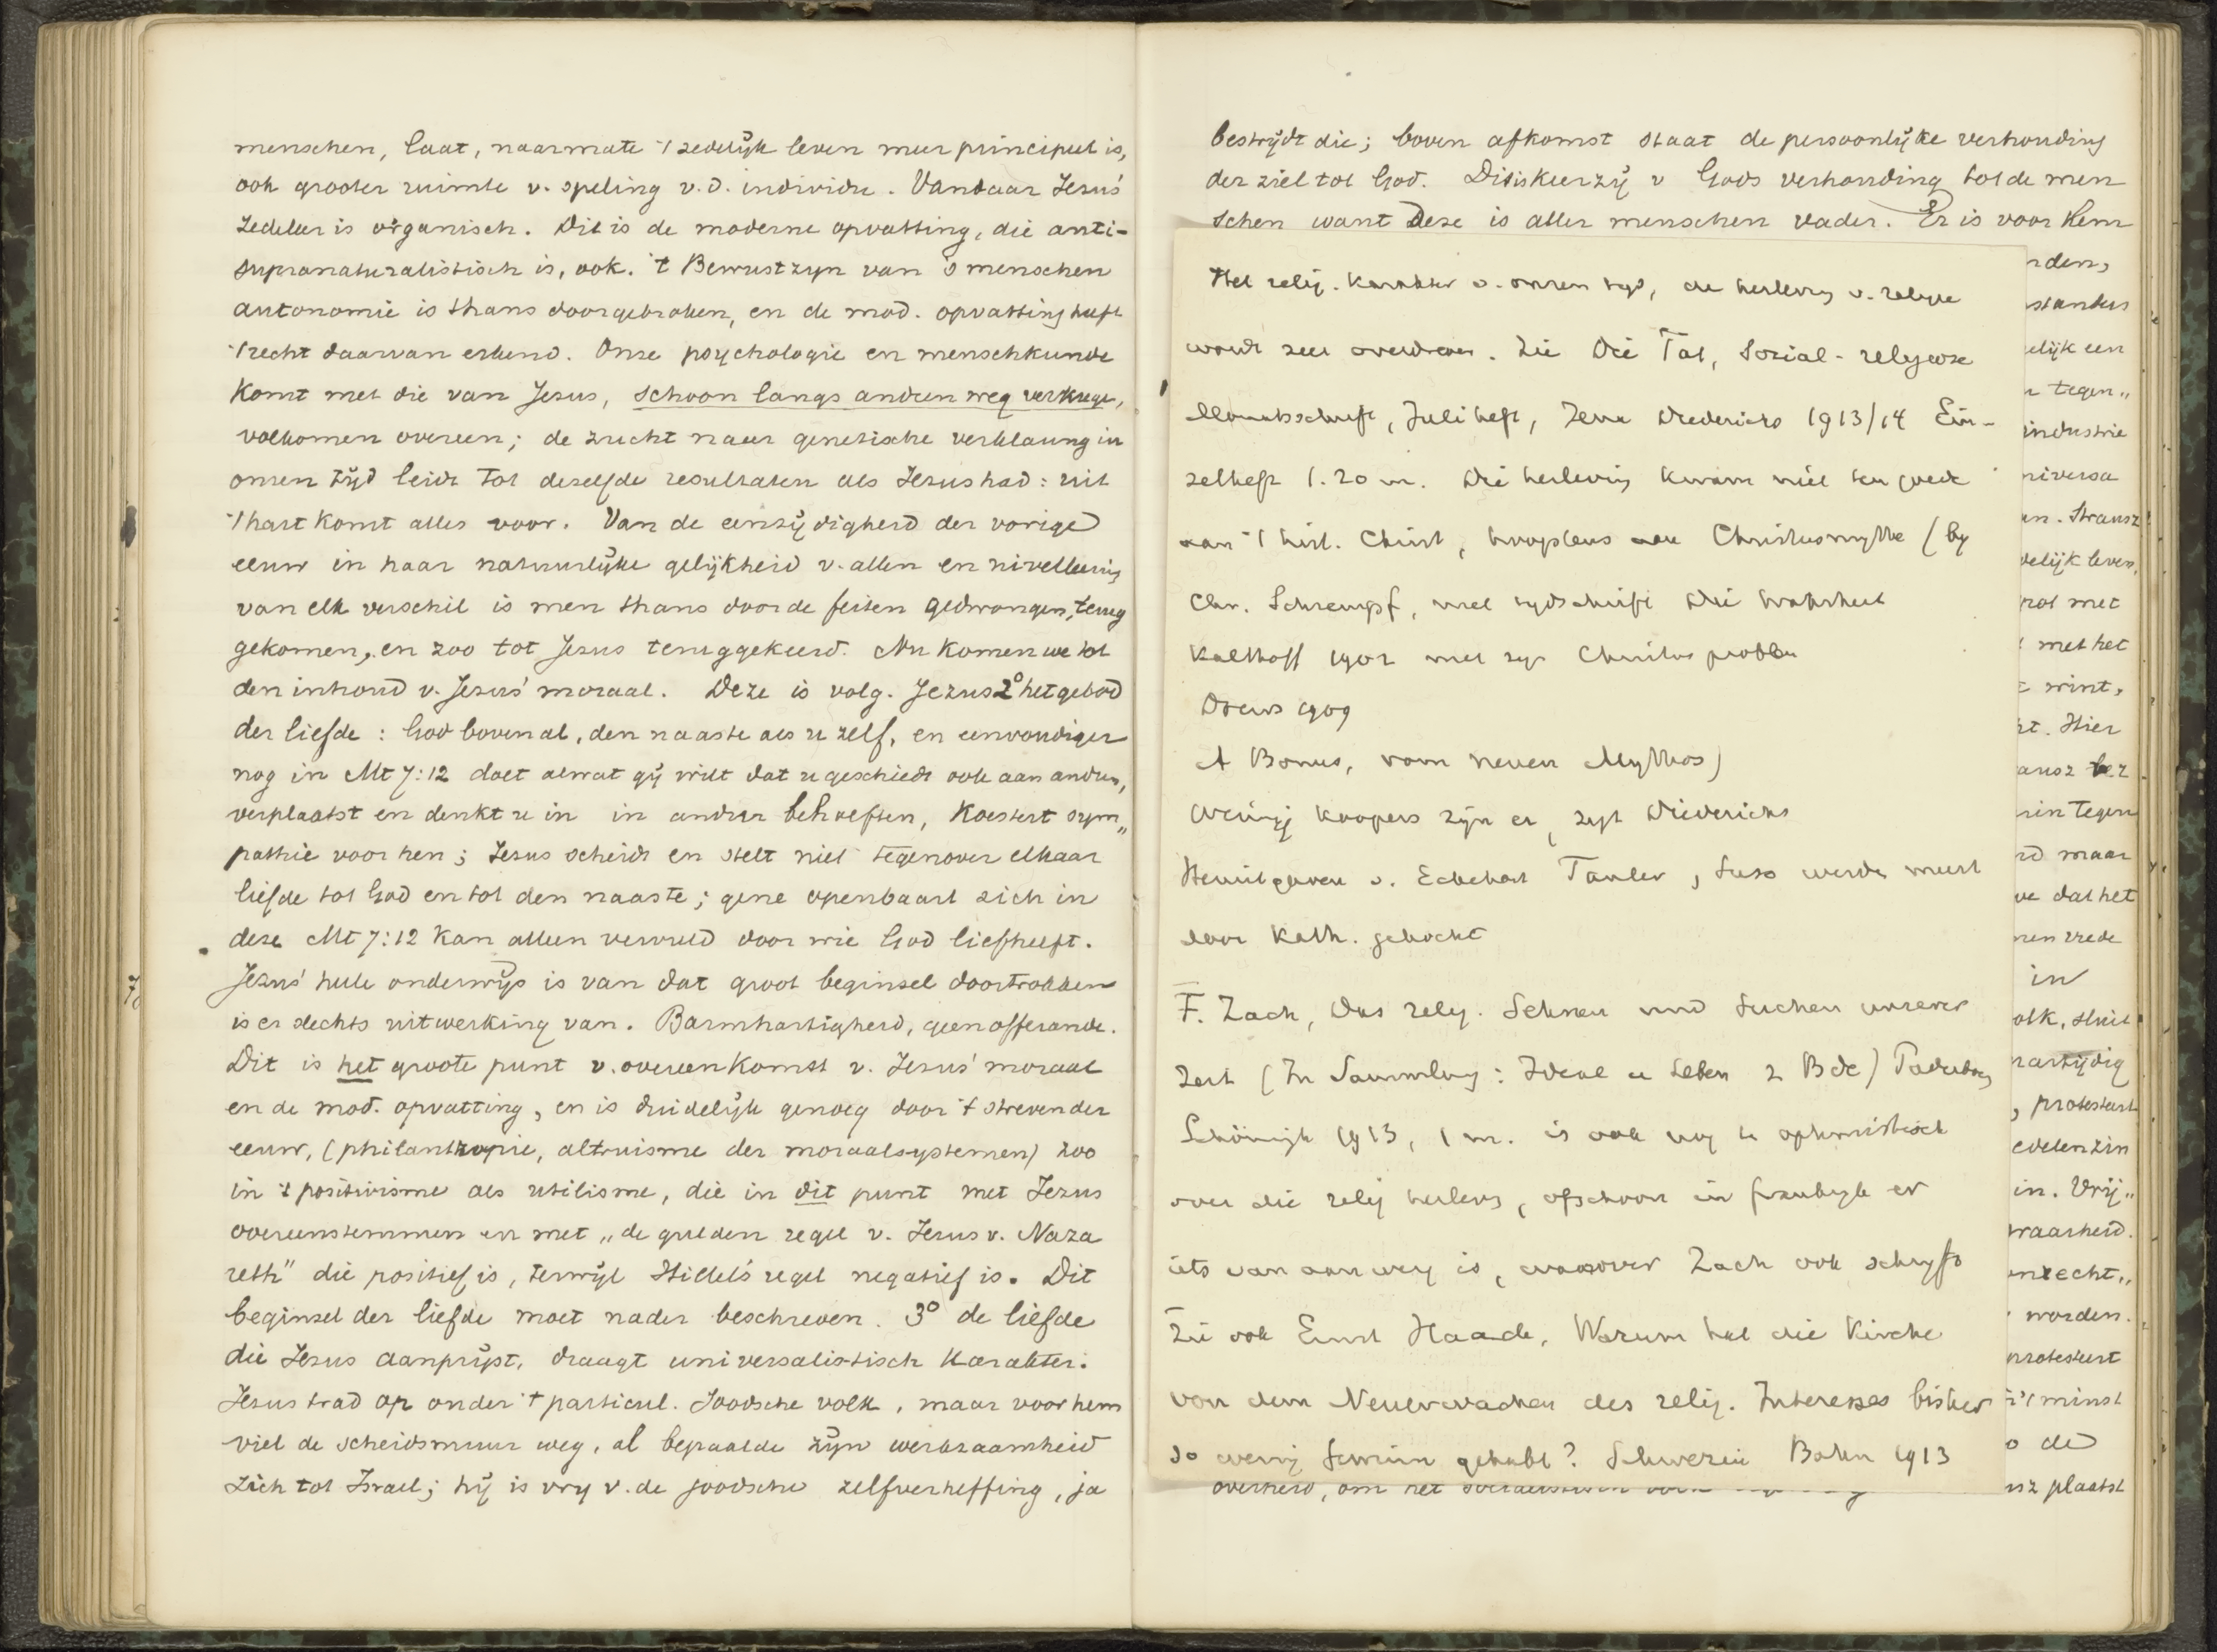 menschen, laat, naarmate 't zedelijk leven meer principeel is,
ook grooter ruimte v. speling v.d. individu. Vandaar Jezus'
zedeleer is organisch. Dit is de moderne opvatting, die anti-
supranaturalistisch is, ook. 't Bewustzyn van 's menschen
autonomie is thans doorgebroken, en de mod. opvatting heeft
't recht daarvan erkend. Onze psychologie en menschkunde
komt met die van Jezus, schoon langs anderen weg verkregen,
volkomen overeen; de zucht naar genetische verklaring in
onzen tijd leidt tot dezelfde resultaten als Jezus had: uit
't hart komt alles voor. Van de eenzijdigheid der vorige
eeuw in haar natuurlijke gelijkheid v. allen en nivelleering
van elk verschil is men thans door de feiten gedwongen, terug
gekomen, en zoo tot Jezus teruggekeerd. Nu komen we tot
den inhoud v. Jezus' moraal. Deze is volg. Jezus 2° het gebod
der liefde: God bovenal, den naaste als u zelf, en eenvoudiger
nog in Mt 7:12 doet alwat gij wilt dat u geschiedt ook aan andren,
verplaatst en denkt u in in andrer behoeften, koestert sym„
pathie voor hen; Jezus scheidt en stelt niet tegenover elkaar
liefde tot God en tot den naaste; gene openbaart zich in
deze Mt 7:12 kan alleen vervuld door wie God liefheeft.
Jezus' heele onderwijs is van dat groot beginsel doortrokken
is er slechts uitwerking van. Barmhartigheid, geen offerande.
Dit is het groote punt v. overeenkomst v. Jezus' moraal
en de mod. opvatting, en is duidelijk genoeg door 't streven der
eeuw, (philanthropie, altruisme der moraalsystemen) zoo
in 't positivisme als utilisme, die in dit punt met Jezus
overeenstemmen en met „de gulden regel v. Jezus v. Naza
reth" die positief is, terwijl Hillel's regel negatief is. Dit
beginsel der liefde moet nader beschreven. 3° de liefde
die Jezus aanprijst, draagt universalistisch karakter.
Jezus trad op onder 't particul. Joodsche volk, maar voor hem
viel de scheidsmuur weg, al bepaalde zijn werkzaamheid
zich tot Israel; hij is vry v. de joodsche zelfverheffing, ja
bestrijdt die; boven afkomst staat de persoonlijke verhouding
der ziel tot God. Dit is keerzij v Gods verhouding tot de men
schen want deze is aller menschen vader. Er is voor hem
Het relig. karakter v. onzen tyd, de herleving v. religie
wordt zeer overdreven. Zie Die Tat, Sozial-religieuze
Monatsschrift, Juliheft, Jena Diederichs 1913/14 Ein-
zelheft 1.20 m. Die herleving kwam niet ten goede
aan 't hist. Christ, hoogstens aan Christusmythe (by
Chr. Schrempf, met tydschrift Die Wahrheit
Kalthoff 1902 met zyn Christusproblem
Drews 1909
A Bonus, vom neuen Mythos)
Weinig koopers zijn er, zegt Diederichs
Heruitgaven v. Eckehart Tauler, Suso werden meest
door Kath. gekocht
F. Zach, Das relig. Sehnen und Suchen unserer
Zeit (In Sammlung: Ideal u Leben 2 Bde) Paderborn
Schöningh 1913, 1 m. is ook nog te optimistisch
over die relig herlevg, ofschoon in Frankryk er
iets van aanwezig is, waarover Zach ook schryft
Zie ook Ernst Haack, Warum hat die Kirche
von dem Neuerwachen des relig. Interesses bisher
so wenig Gewinn gehabt? Schwerin Bahn 1913
rden,
standus
elijk een
n tegen„
industrie
niversa
en. Strausz
delijk leven,
rol met
met het
wint,
rt. Hier
ausz be.z
rin tegen
rd maar
ve dat het
nen vrede
in
olk, sluit
nartijdig
, protesteert
edelen zin
in. Vrij„
waarheid.
nrecht„
worden.
protesteert
't minst
o de
usz plaatst
overheid, om het